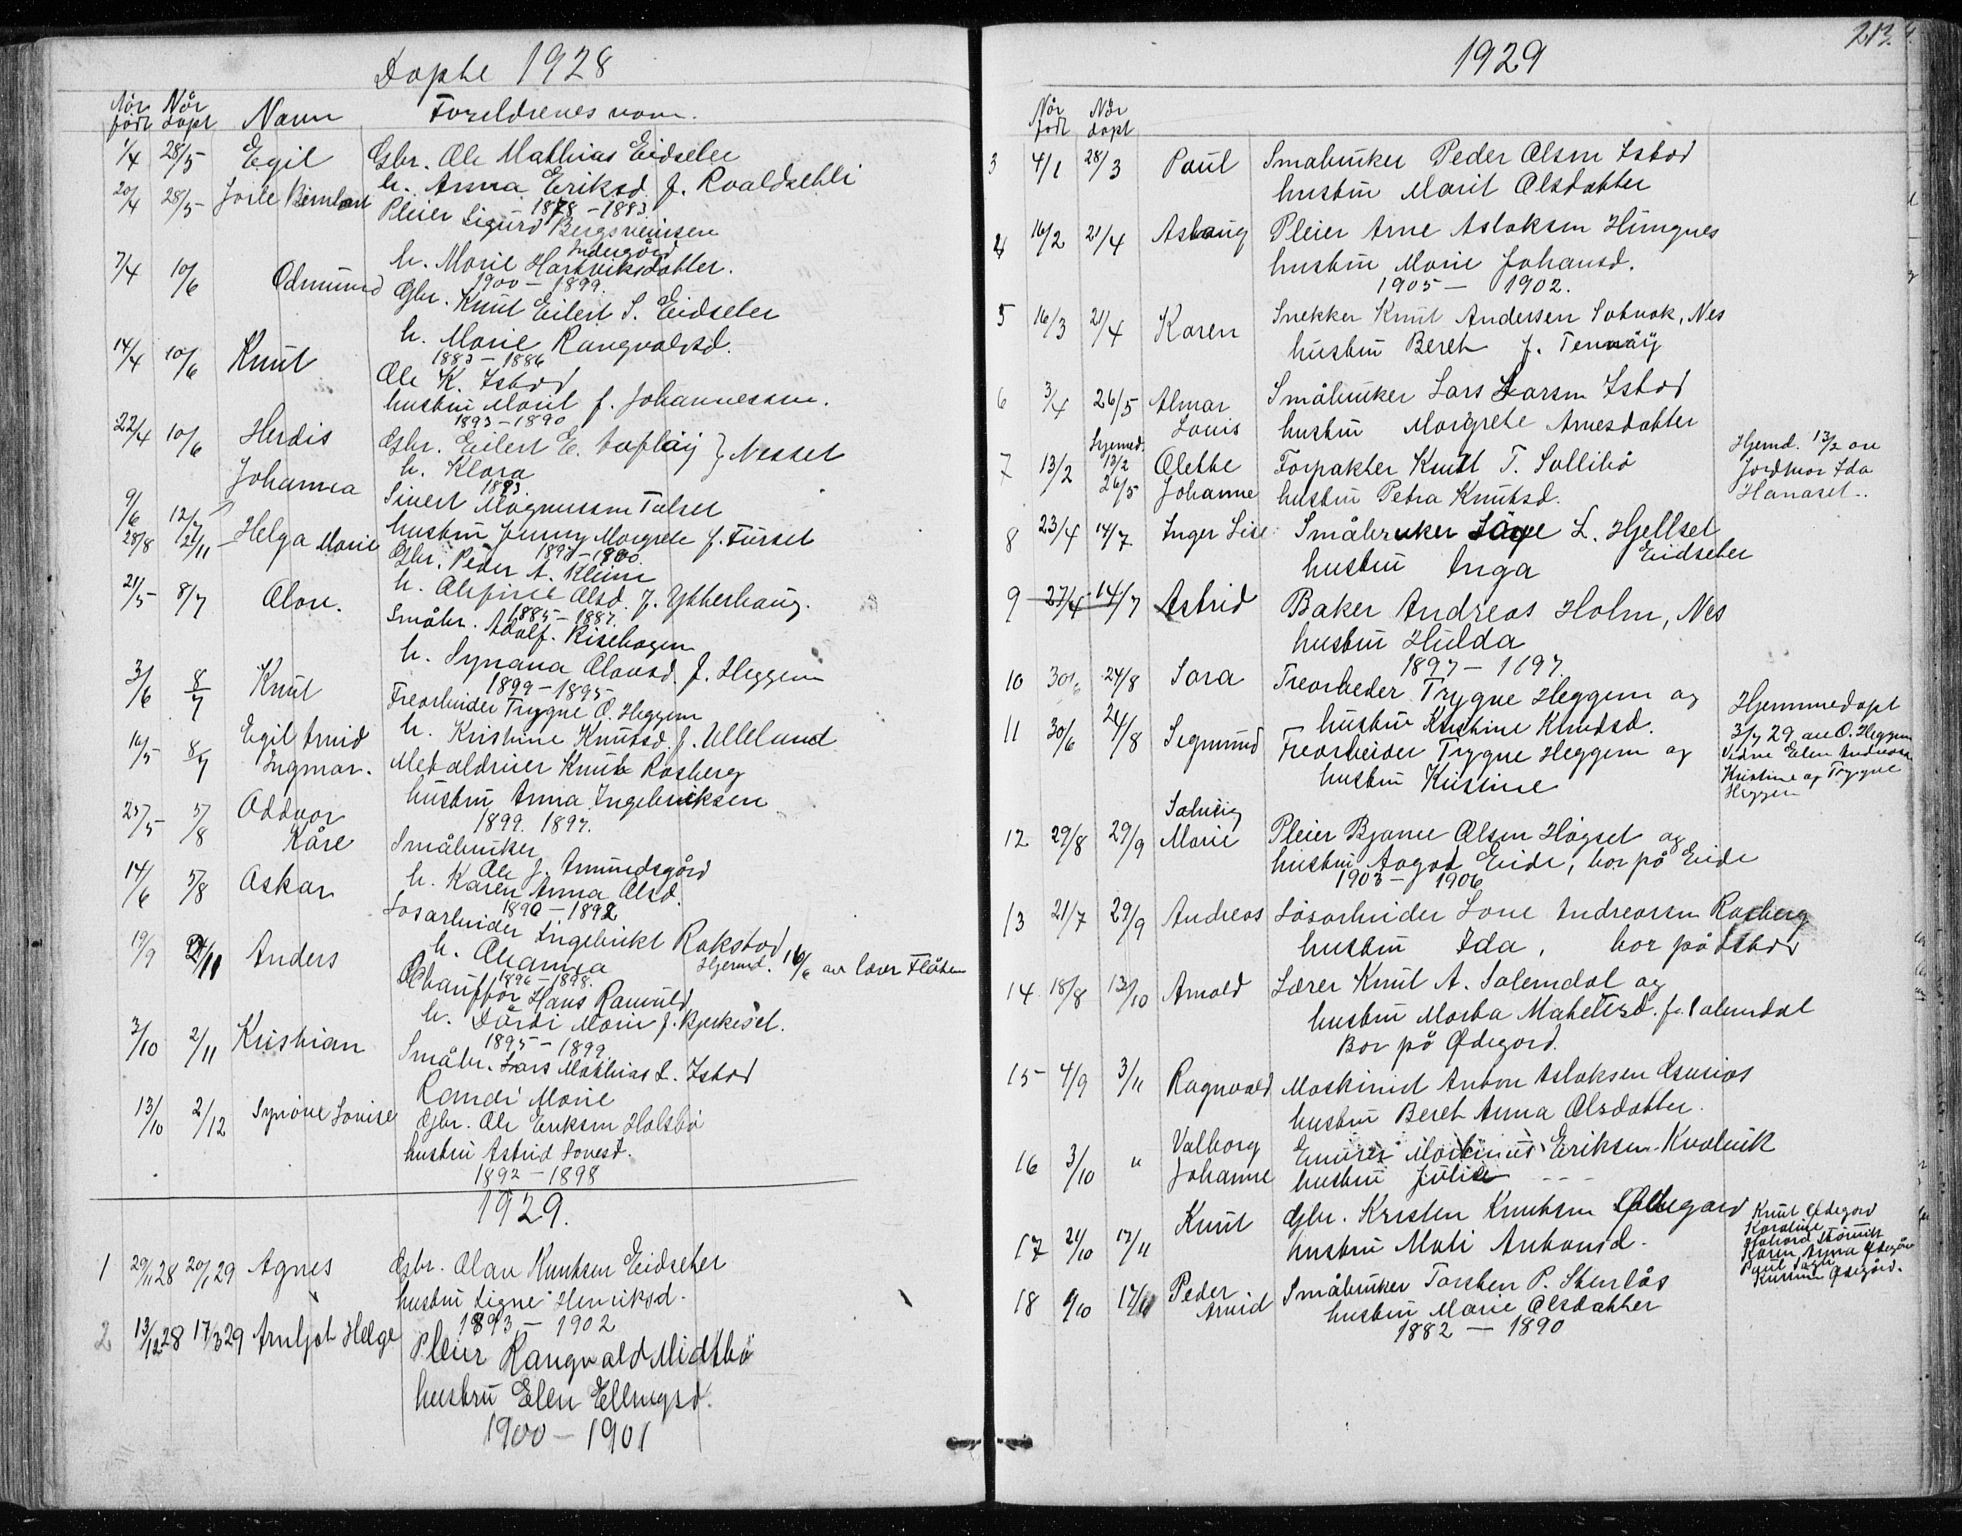 Døpte 1928
Når født Når døpt Navn Foreldrenes navn.
1/4 28/5 Egil Gbr. Ole Mathias Eidseter
h. Anna Eriksd. f. Roaldsetli
1878 - 1883.
20/4 28/5 Pleier Sigurd Bergsveinsen
h. Marie Hartviksdatter.
1900 - 1899.
7/4 10/6 Odmund Gbr. Knut Eilert S. Eidseter
h. Marie Rangvaldsd.
1883 - 1886
14/4 10/6 Knut Ole K. Istad
hustru Marit f. Johannessen.
1893 - 1890
22/4 10/6 Herdis Johanna Gbr. Eilert E. } Nesset
h. Klara
1893.
9/6 12/7 Sivert Magnussen
28/8 2/11 Helga Marie hustru Jenny Margrete f.
1897 - 1900.
Gbr. Peder A. Kleive
21/5 8/7 Olov. h. Olufine Olsd. f. Ytterhaug.
1885 - 1887.
Småbr. Adolf. Risehagen
h. Synnana Olavsd. f. Heggem
1899 - 1895
3/6 8/7 Knut Trearbeider Trygve O. Heggem
h. Kristine Knutsd. f. Ulleland
16/5 8/7 Egil Arvid Ingmar. Metaldriver Knut Rosberg
hustru Anna Ingebriktsen
1899. 1897.
25/5 5/8 Oddvar Kåre Småbruker
Ole J. Amundsgård
h. Karen Anna Olsd.
1890 - 1892
14/6 5/8 Oskar Løsarbeider Ingebrikt Rakstad
h. Hjemd. 16/6 av lærer Fløtten
1896 - 1898.
19/9 Anders Chauffør Hans Ranvik
h. Dårdi Marie f. Bjerkeset.
1895 - 1899.
3/10 2/11 Kristian Småbr. Lars Mathias L. Istad
Randi Marie
13/10 2/12 Synnøve Lovise Gbr. Ole Eriksen Holsbø
hustru Astrid Jonesd.
1892 - 1898
1929.
1 29/11 28 20/1 29 Agnes Gbr. Olav Knutsen Eidseter
hustru Signe Henriksd.
1893 - 1902
2 13/12 28 17/3 29 Arnljot Helge Pleier Rangvald Midtbø
hustru Elen Ellingsd.
1900 - 1901
1929
Når født Når døpt
3 4/1 28/3 Paul Småbruker Peder Olsen Istad
hustru Marit Olsdatter
4 16/2 21/4 Aslaug Pleier Arne Aslaksen Hungnes
hustru Marie Johansd.
1905 - 1902.
5 16/3 21/4 Karen Snekker Knut Andersen Solvak, Nes
hustru Beret f. Tennøy
6 3/4 26/5 Almar Louis Småbruker Lars Larsen Istad
hustru Margrete Arnesdatter
7 13/2 Hjemmed. 13/2 26/5 Olette Johanne Forpakter Knut T. Sollibø
hustru Petra Knutsd.
Hjemd. 13/2 av Jordmor Ida Hanaset.
8 23/4 14/7 Inger Lise Småbruker L. Hjellset
Eidseter
hustru Inga
9 27/4 14/7 Astrid Baker Andreas Holm, Nes
hustru Hulda
1897 - 1897
10 30/6 24/8 Sora Trearbeider Trygve Heggem og
hustru Kristine Knudsd.
11 30/6 24/8 Sigmund Trearbeider Trygve Heggem og
hustru Kristine
Hjemmedøpt
3/7 29 av O. Heggem
Vidne Elen Andreasen
Kristine og Trygve
Heggem
12 29/8 29/9 Solveig Marie Pleier Bjarne Olsen Høgset og
hustru Aagot Eide, bor på Eide
1903 - 1906
13 21/7 29/9 Andreas Løsarbeider Lone Andreassen Rosberg
hustru Ida, bor på Istad
14 18/8 13/10 Arnold Lærer Knut A. Solemdal og
hustru Marta Matelisd. f. Solemdal
Bor på Ødegård.
15 4/9 3/11 Ragnvald Maskinist Anton Aslaksen
hustru Beret Anna Olsdatter.
16 3/10 " Valborg Johanne Martinus Eriksen Kvalvik
hustru Julie - - -
17 21/10 17/11 Knut Gbr. Kristen Knutsen Ødegård
hustru Mali Antonsd.
Knut Ødegård
Karoline
Karen Anna Ødegård
Ødegård.
18 6/10 17/11 Peder Arvid Småbruker Torsten P. Stenløs
hustru Marie Olsdatter
1882 - 1890